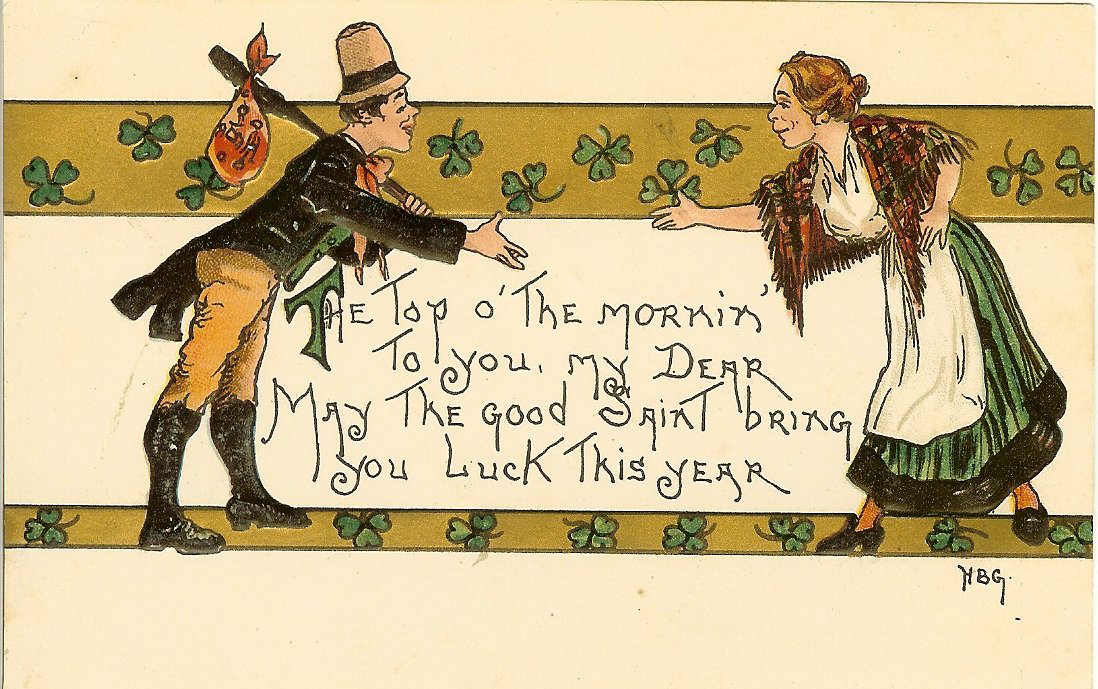 The Top o' The mornin'
To you, my Dear
May The good Saint bring
you Luck This year
HBG.